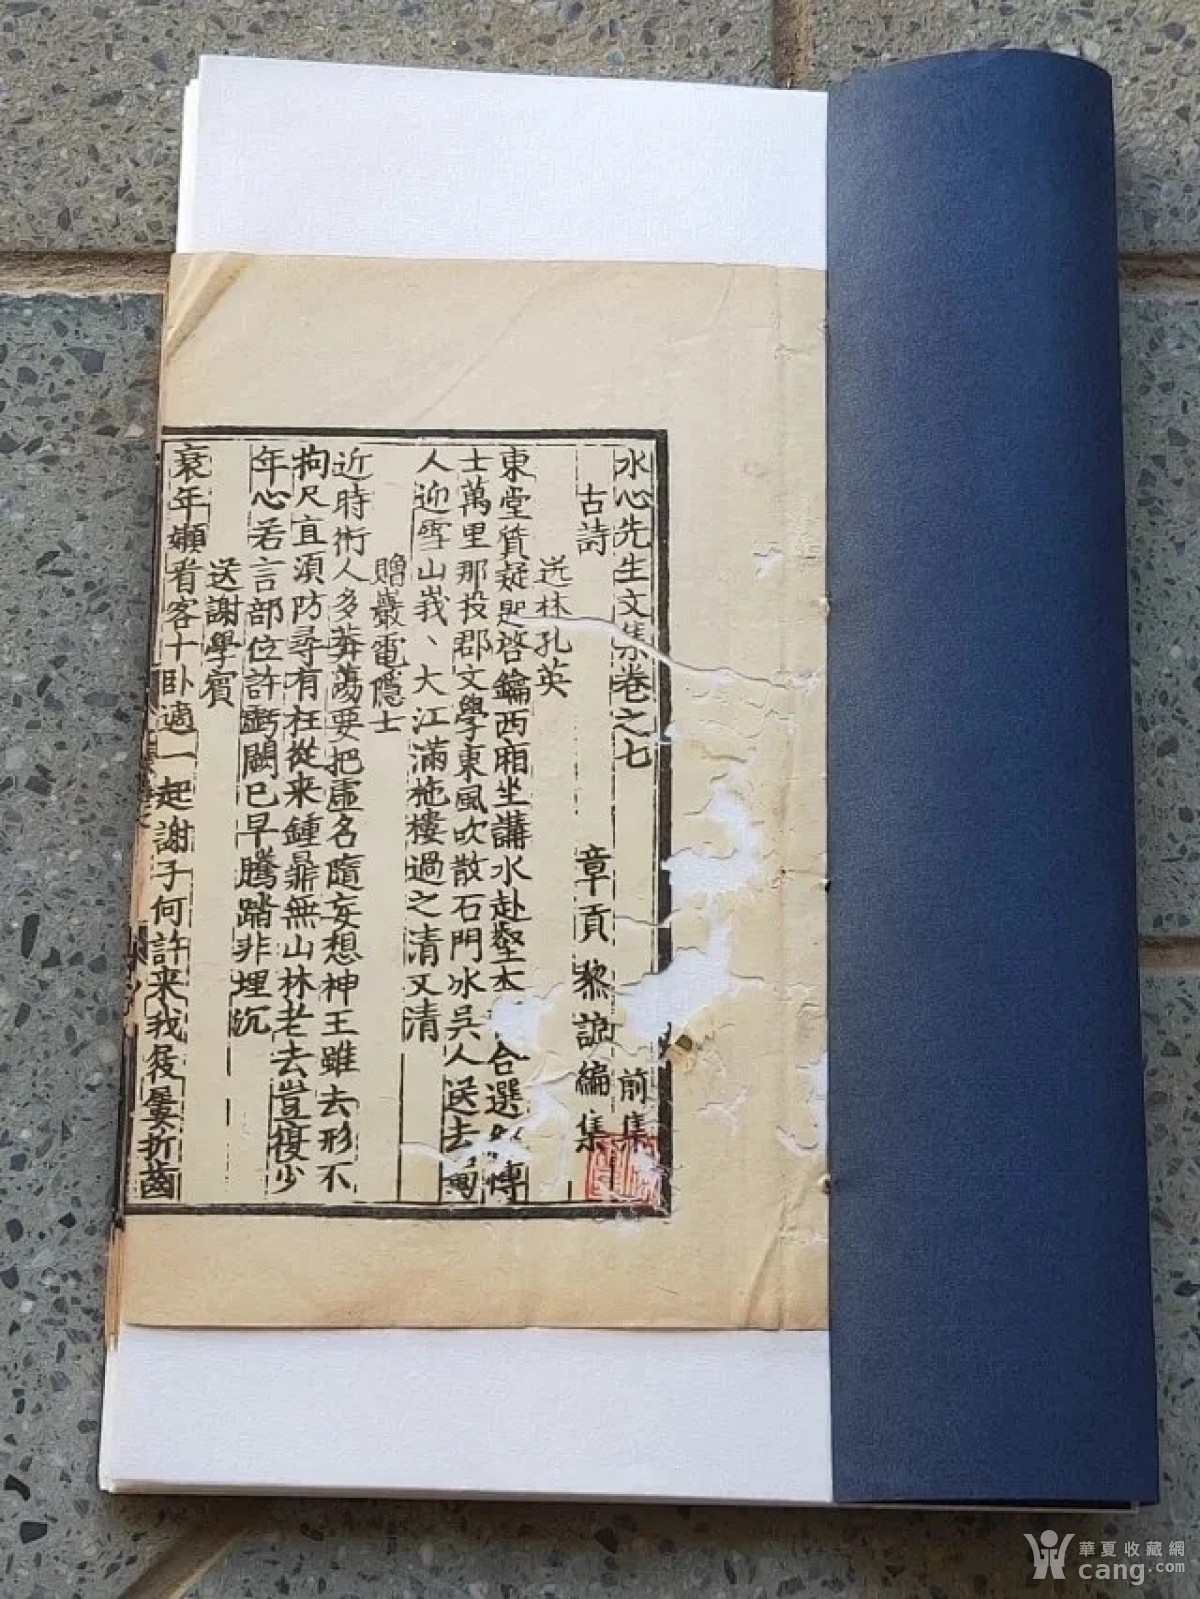 水心先生文集卷之七
前集
古詩
章貢黎諒編集
送林孔英
東堂質疑匙啓鑰西廂坐講水赴壑本合選傳
士萬里那投郡文學東風吹散石門冰吳人送去蜀
人迎雪山峩丶大江滿柂樓過之清又清
贈巖電隱士
近時術人多莽蕩要把虛名隨妄想神王雖去形不
拘尺直須防尋有枉從来鍾鼎無山林老去豈復少
年心若言部位許虧闕已早騰踏非埋沉
送謝學賓
衰年嬾看客十卧適一起謝子何許来我屐屢折齒
華夏收藏網
cang.com